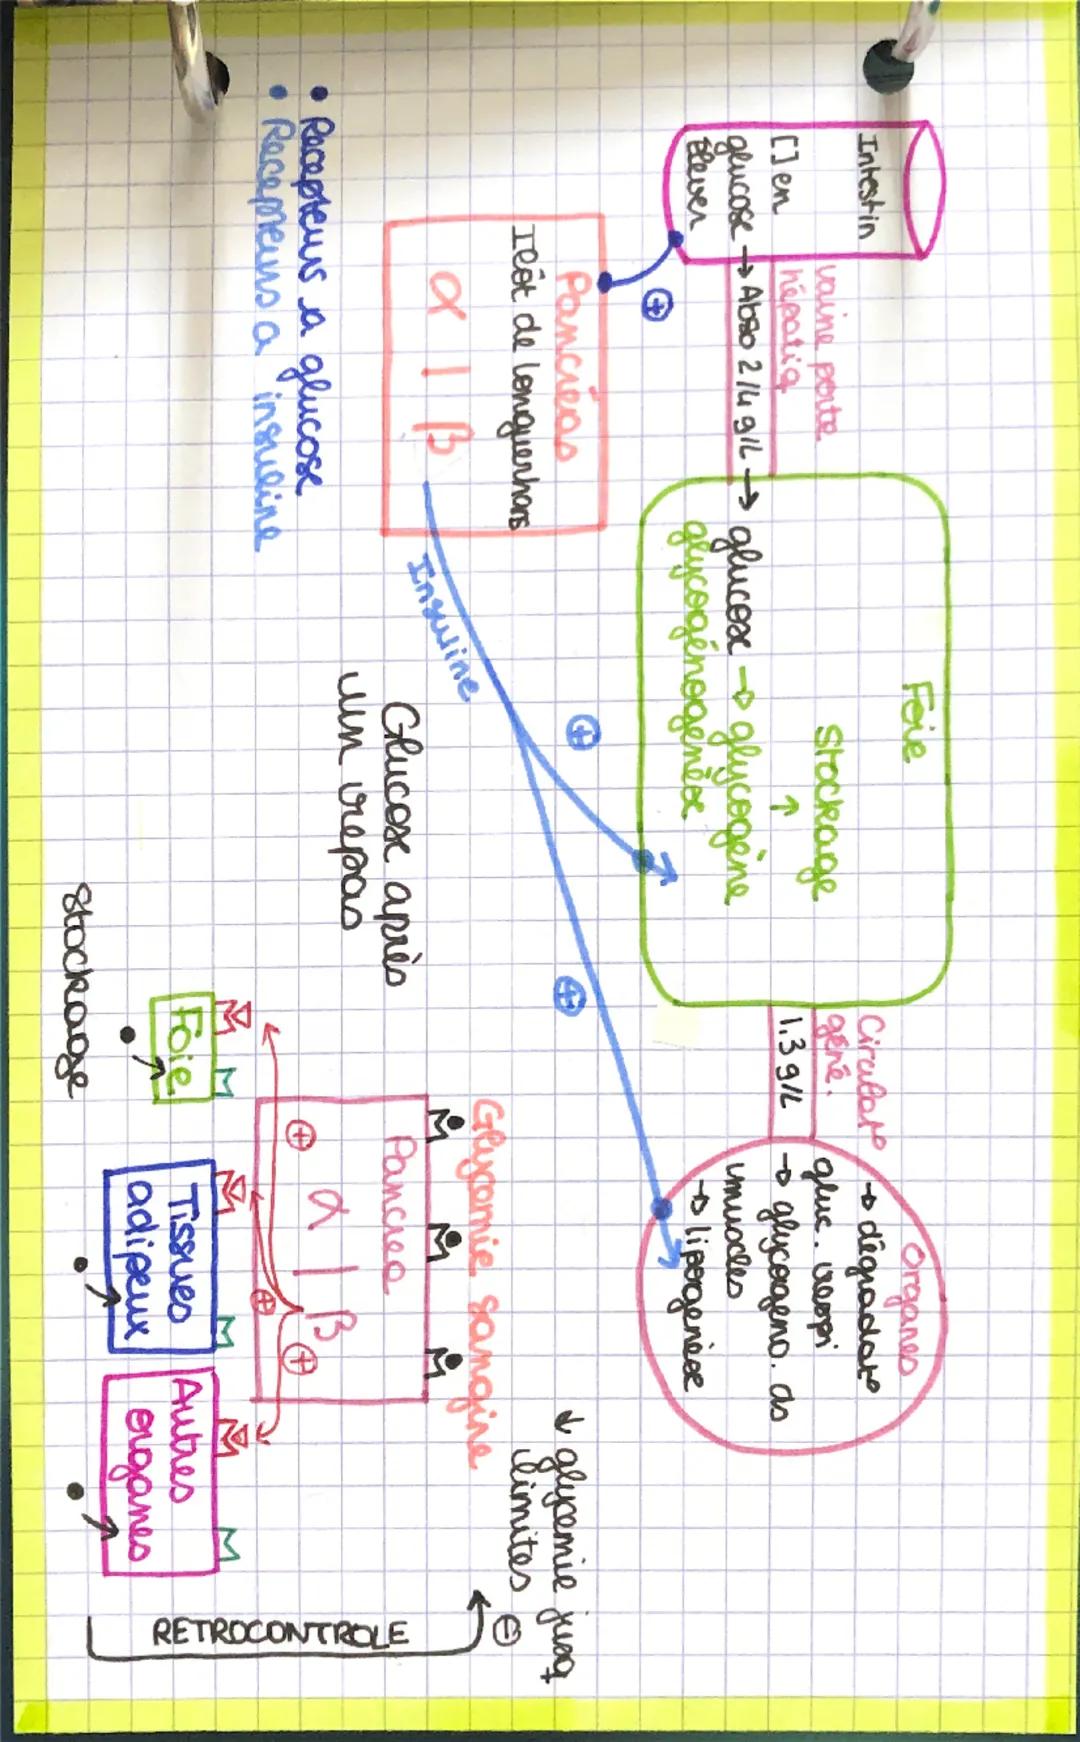 Intestin
[] en
glucose → Abso 2/4 g/L → glucose → glycogène
élever
vaine porte
hépatiq
Foie
Stockage
↑
glycogénogenèse
Circulat°
géné.
1.3 g/L
Organes
→ dégradat°
gluc. respi
→ glycogeno. ds
muscles
→ lipogenèse
⊕
Pancréas
Ilôt de longuerhans
α | β
Insuline
⊕
⊕
• Recepteurs a glucose
• Recepteurs a insuline
Glucose après
un repas
↓ glycemie jusq
limites
Glycemie sanguine
Pancrea
α | β
⊕
⊕
⊕
Foie
Tissues
adipeux
Autres
organes
Stockage
RETROCONTROLE
⊖